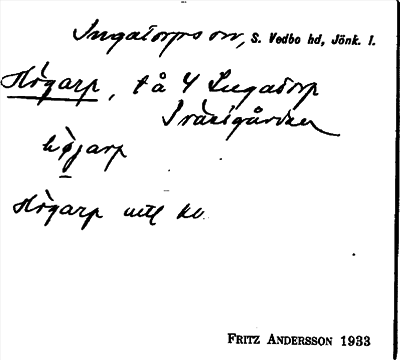 Ingatorps sn, S. Vedbo hd, Jönk. l.
Högarp, tå 4 Ingatorp
Prästgården
högarp
Högarp uttl
FRITZ ANDERSSON 1933